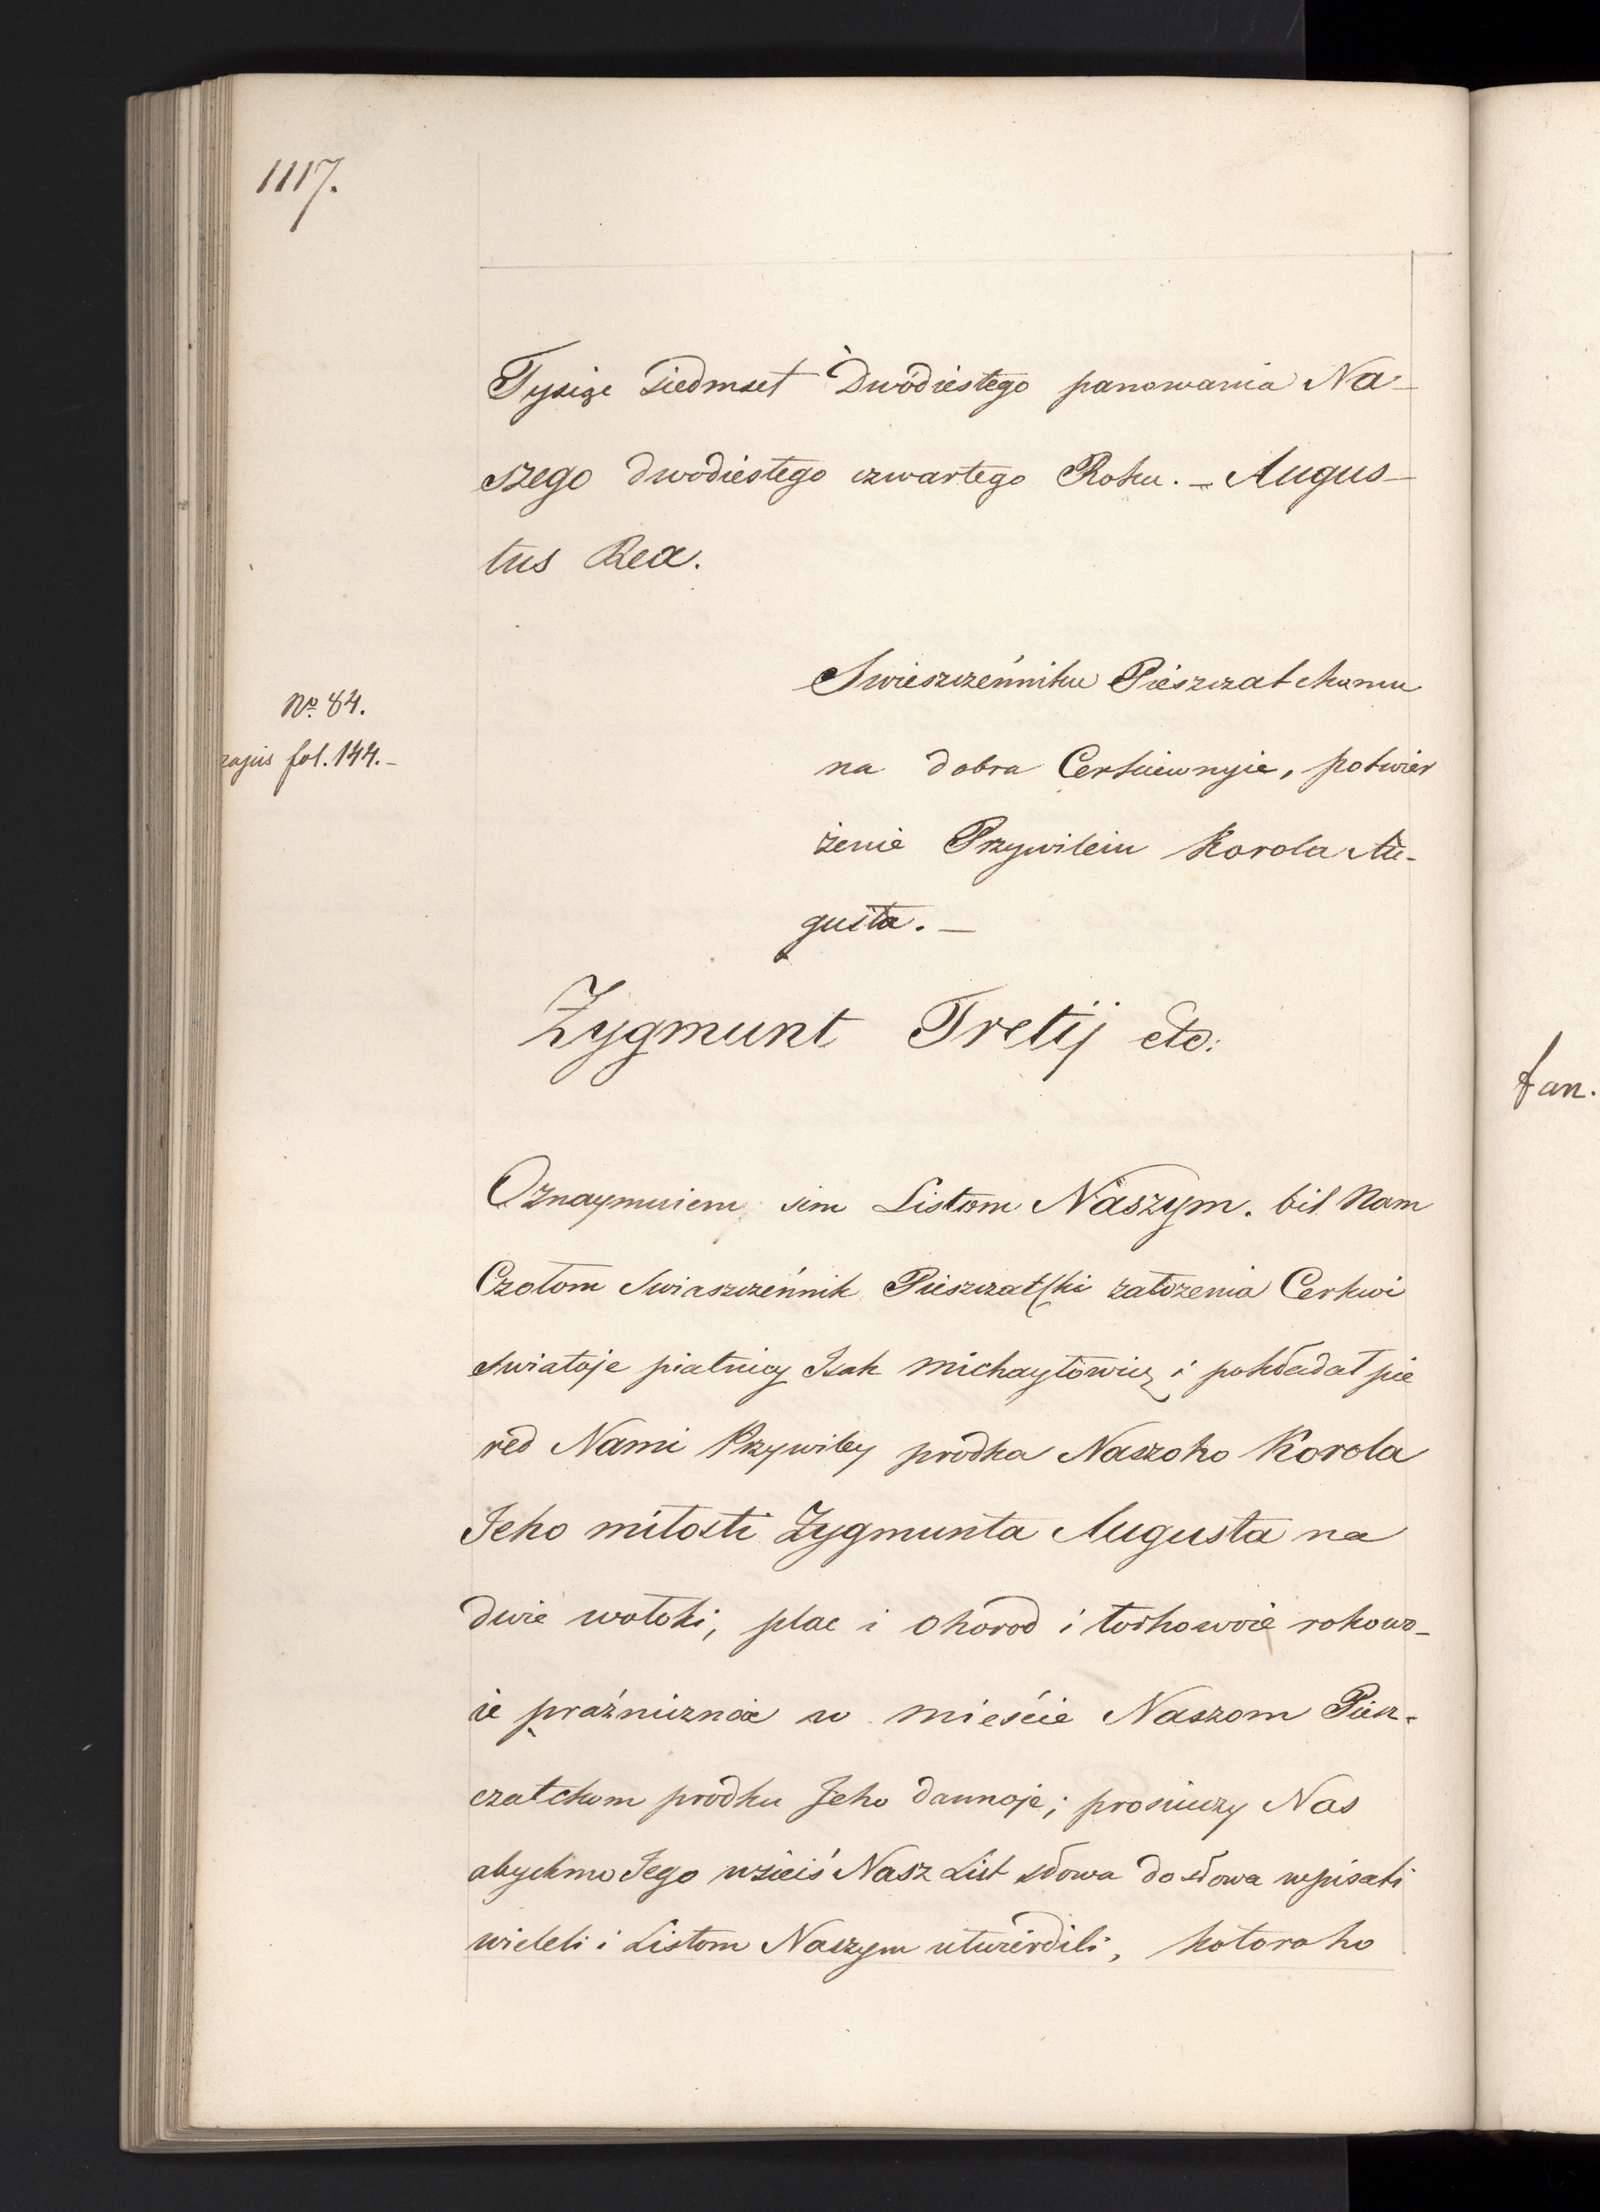 1117.
Tysiąc siedmset Dwódiestego panowania Na-
szego dwodiestego czwartego Roku. - Augus-
tus Rex.
No 84.
zapis fol. 144.-
Swieszczeńniku Piészczatskomu
na dobra Cerkiewnyie, potwier
żenie Przywileiu Korola Au-
gusta. -
Zygmunt Tretij etc:
Oznaymuiem sim Listom Naszym. bił Nam
Czołom Swiaszczeńnik Pieszczatski założenia Cerkwi
swiatoje piatnicy Isak Michayłowicz i pokładał pie
red Nami Przywiley prodka Naszoho Korola
Jeho miłosti Zygmunta Augusta na
dwie wołoki, plac i ohorod i torhowoie rokowo-
ie praźnicznoie w mieście Naszom Piesz-
czatskom prodku Jeho dannoje; prosiuczy Nas
abychmo Jego w sieiś Nasz List słowa do słowa wpisati
wieleli i Listom Naszym utwierdili, kotoroho
fan.